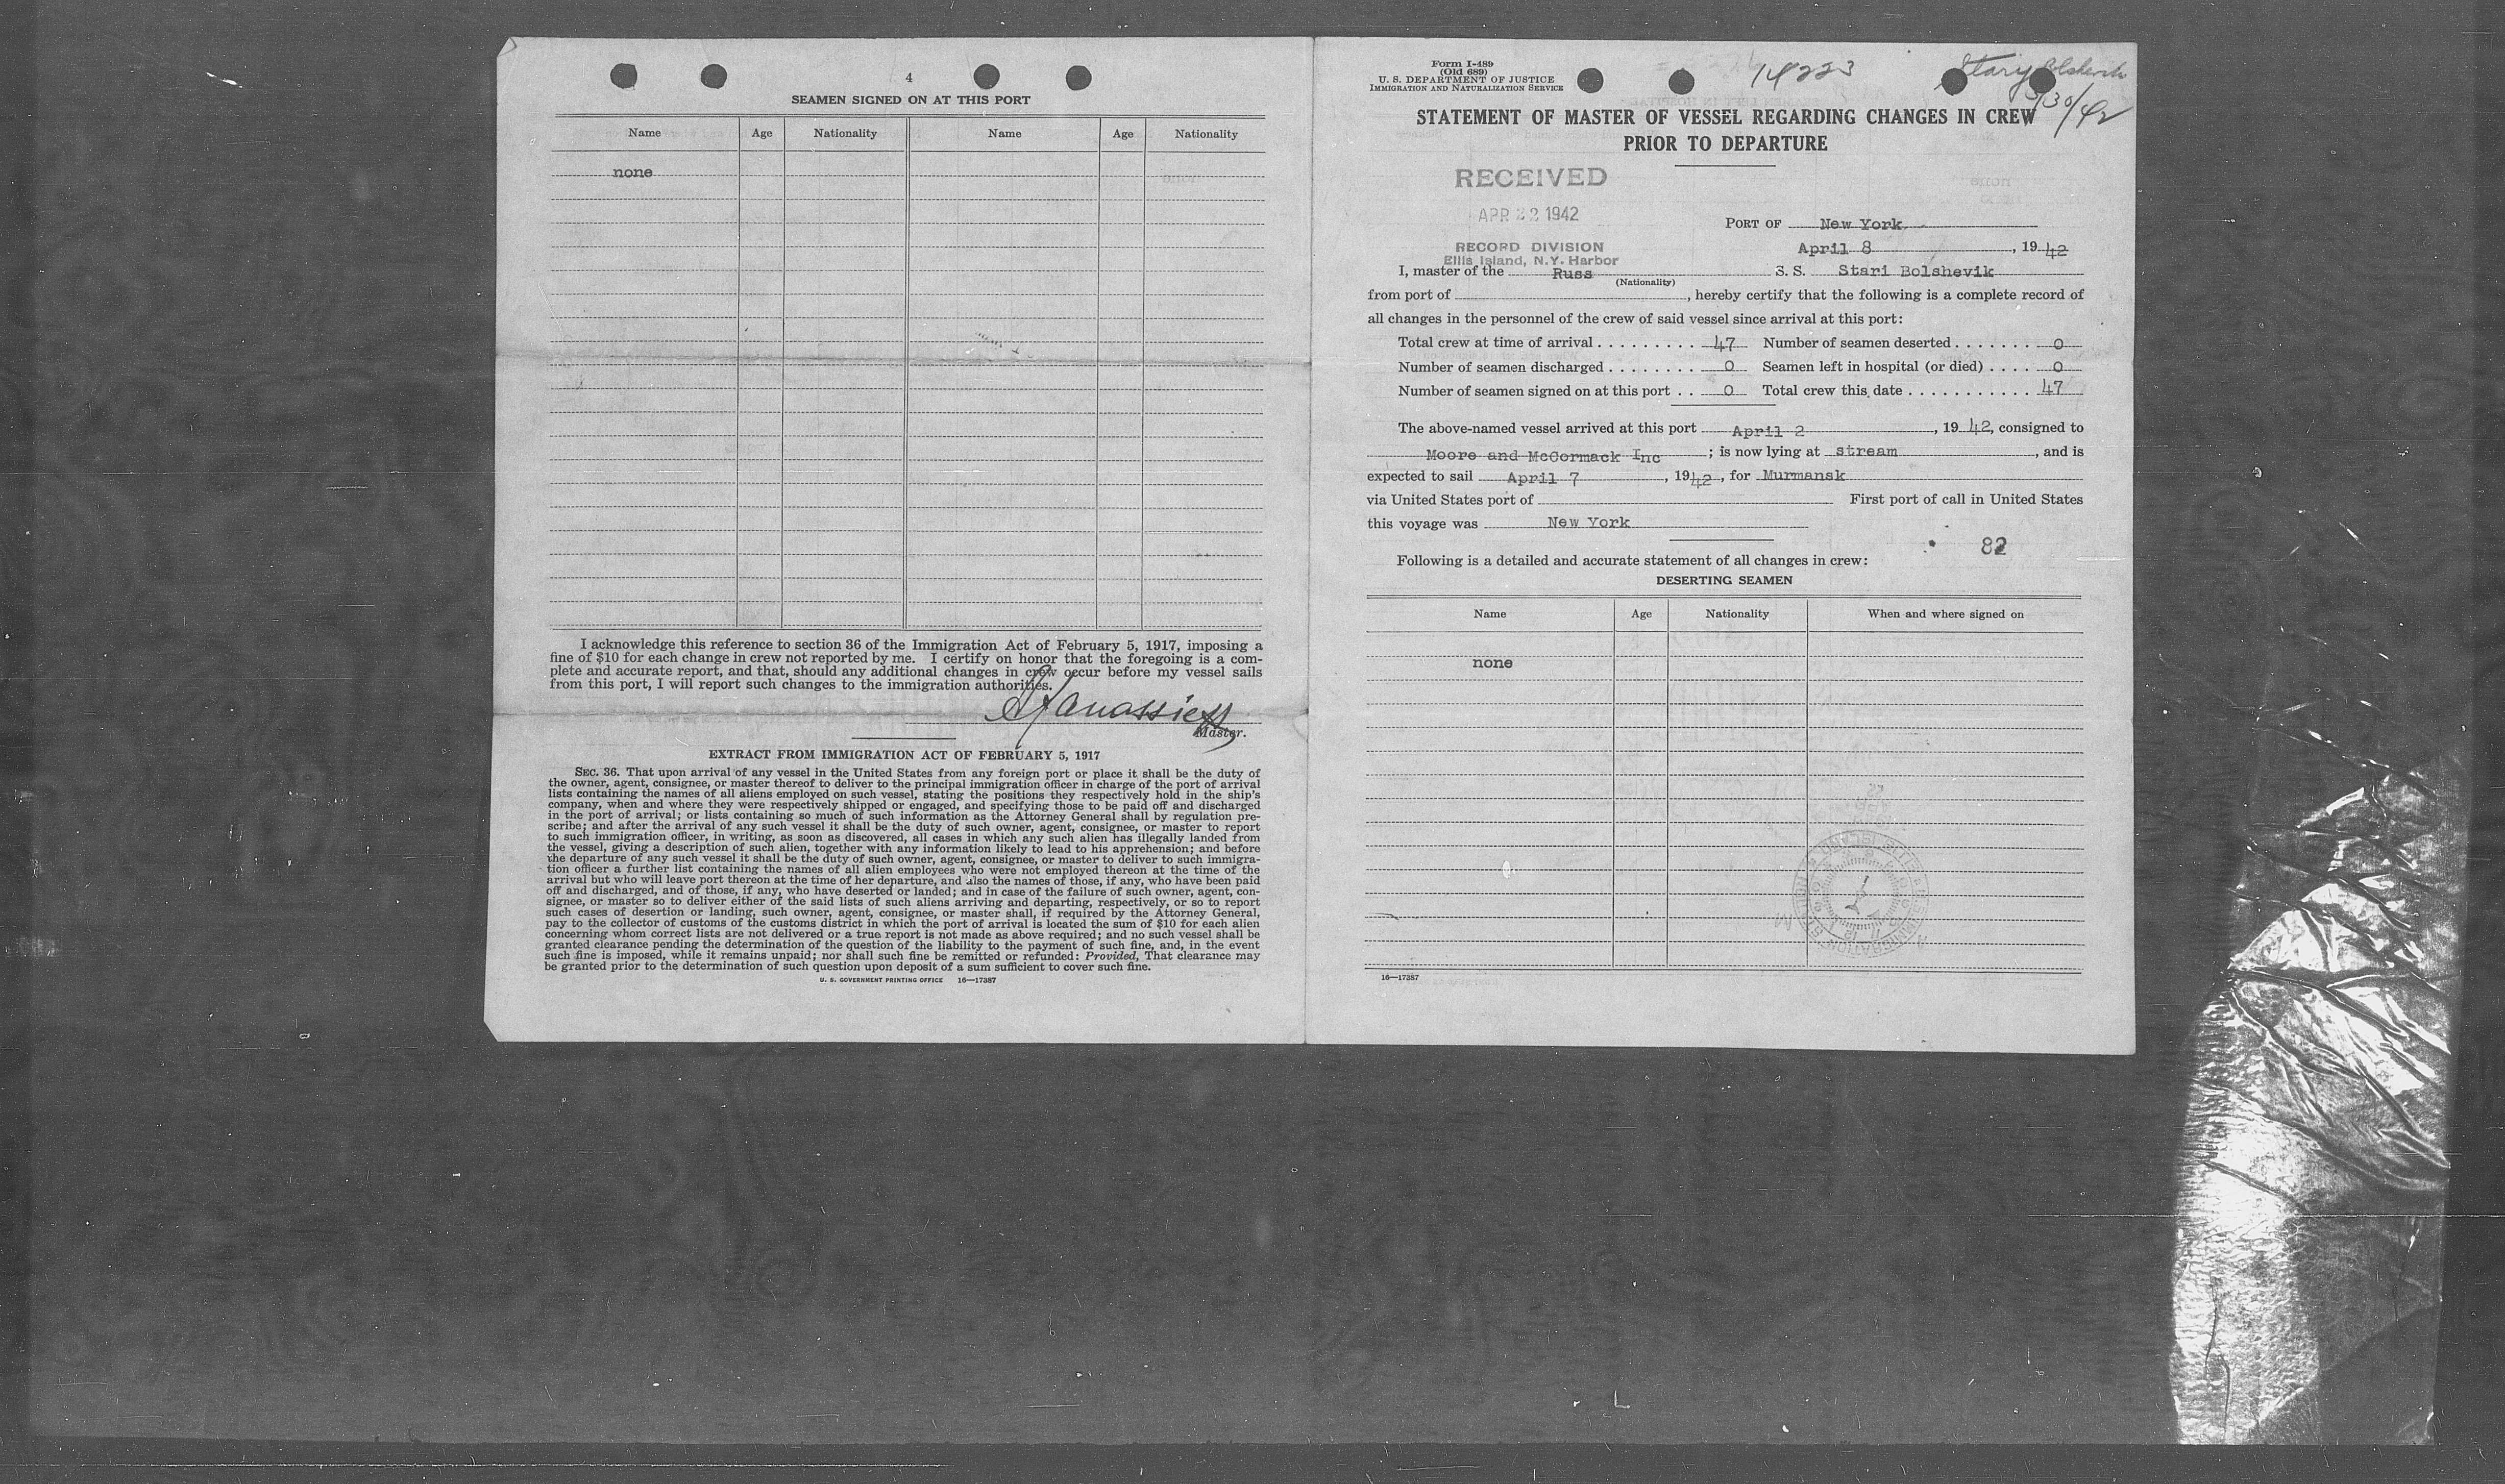 4
SEAMEN SIGNED ON AT THIS PORT
Name Age Nationality Name Age Nationality
none
I acknowledge this reference to section 36 of the Immigration Act of February 5, 1917, imposing a
fine of $10 for each change in crew not reported by me. I certify on honor that the foregoing is a com-
plete and accurate report, and that, should any additional changes in crew occur before my vessel sails
from this port, I will report such changes to the immigration authorities.
Master.
EXTRACT FROM IMMIGRATION ACT OF FEBRUARY 5, 1917
SEC. 36. That upon arrival of any vessel in the United States from any foreign port or place it shall be the duty of
the owner, agent, consignee, or master thereof to deliver to the principal immigration officer in charge of the port of arrival
lists containing the names of all aliens employed on such vessel, stating the positions they respectively hold in the ship's
company, when and where they were respectively shipped or engaged, and specifying those to be paid off and discharged
in the port of arrival; or lists containing so much of such information as the Attorney General shall by regulation pre-
scribe; and after the arrival of any such vessel it shall be the duty of such owner, agent, consignee, or master to report
to such immigration officer, in writing, as soon as discovered, all cases in which any such alien has illegally landed from
the vessel, giving a description of such alien, together with any information likely to lead to his apprehension; and before
the departure of any such vessel it shall be the duty of such owner, agent, consignee, or master to deliver to such immigra-
tion officer a further list containing the names of all alien employees who were not employed thereon at the time of the
arrival but who will leave port thereon at the time of her departure, and also the names of those, if any, who have been paid
off and discharged, and of those, if any, who have deserted or landed; and in case of the failure of such owner, agent, con-
signee, or master so to deliver either of the said lists of such aliens arriving and departing, respectively, or so to report
such cases of desertion or landing, such owner, agent, consignee, or master shall, if required by the Attorney General,
pay to the collector of customs of the customs district in which the port of arrival is located the sum of $10 for each alien
concerning whom correct lists are not delivered or a true report is not made as above required; and no such vessel shall be
granted clearance pending the determination of the question of the liability to the payment of such fine, and, in the event
such fine is imposed, while it remains unpaid; nor shall such fine be remitted or refunded: Provided, That clearance may
be granted prior to the determination of such question upon deposit of a sum sufficient to cover such fine.
U. S. GOVERNMENT PRINTING OFFICE 16—17387
Form I-489
(Old 689)
U. S. DEPARTMENT OF JUSTICE
IMMIGRATION AND NATURALIZATION SERVICE
14223
Stary Bolshevik
3/30/42
STATEMENT OF MASTER OF VESSEL REGARDING CHANGES IN CREW
PRIOR TO DEPARTURE
RECEIVED
APR 22 1942
RECORD DIVISION
Ellis Island, N.Y. Harbor
PORT OF New York
April 8, 1942
I, master of the Russ S. S. Stari Bolshevik
(Nationality)
from port of , hereby certify that the following is a complete record of
all changes in the personnel of the crew of said vessel since arrival at this port:
Total crew at time of arrival . . . . . . . . . 47 Number of seamen deserted . . . . . . . 0
Number of seamen discharged . . . . . . . . 0 Seamen left in hospital (or died) . . . . 0
Number of seamen signed on at this port . . 0 Total crew this date . . . . . . . . . . . 47
The above-named vessel arrived at this port April 2, 1942, consigned to
Moore and McCormack Inc ; is now lying at stream, and is
expected to sail April 7, 1942, for Murmansk
via United States port of First port of call in United States
this voyage was New York
82
Following is a detailed and accurate statement of all changes in crew:
DESERTING SEAMEN
Name Age Nationality When and where signed on
none
16—17387